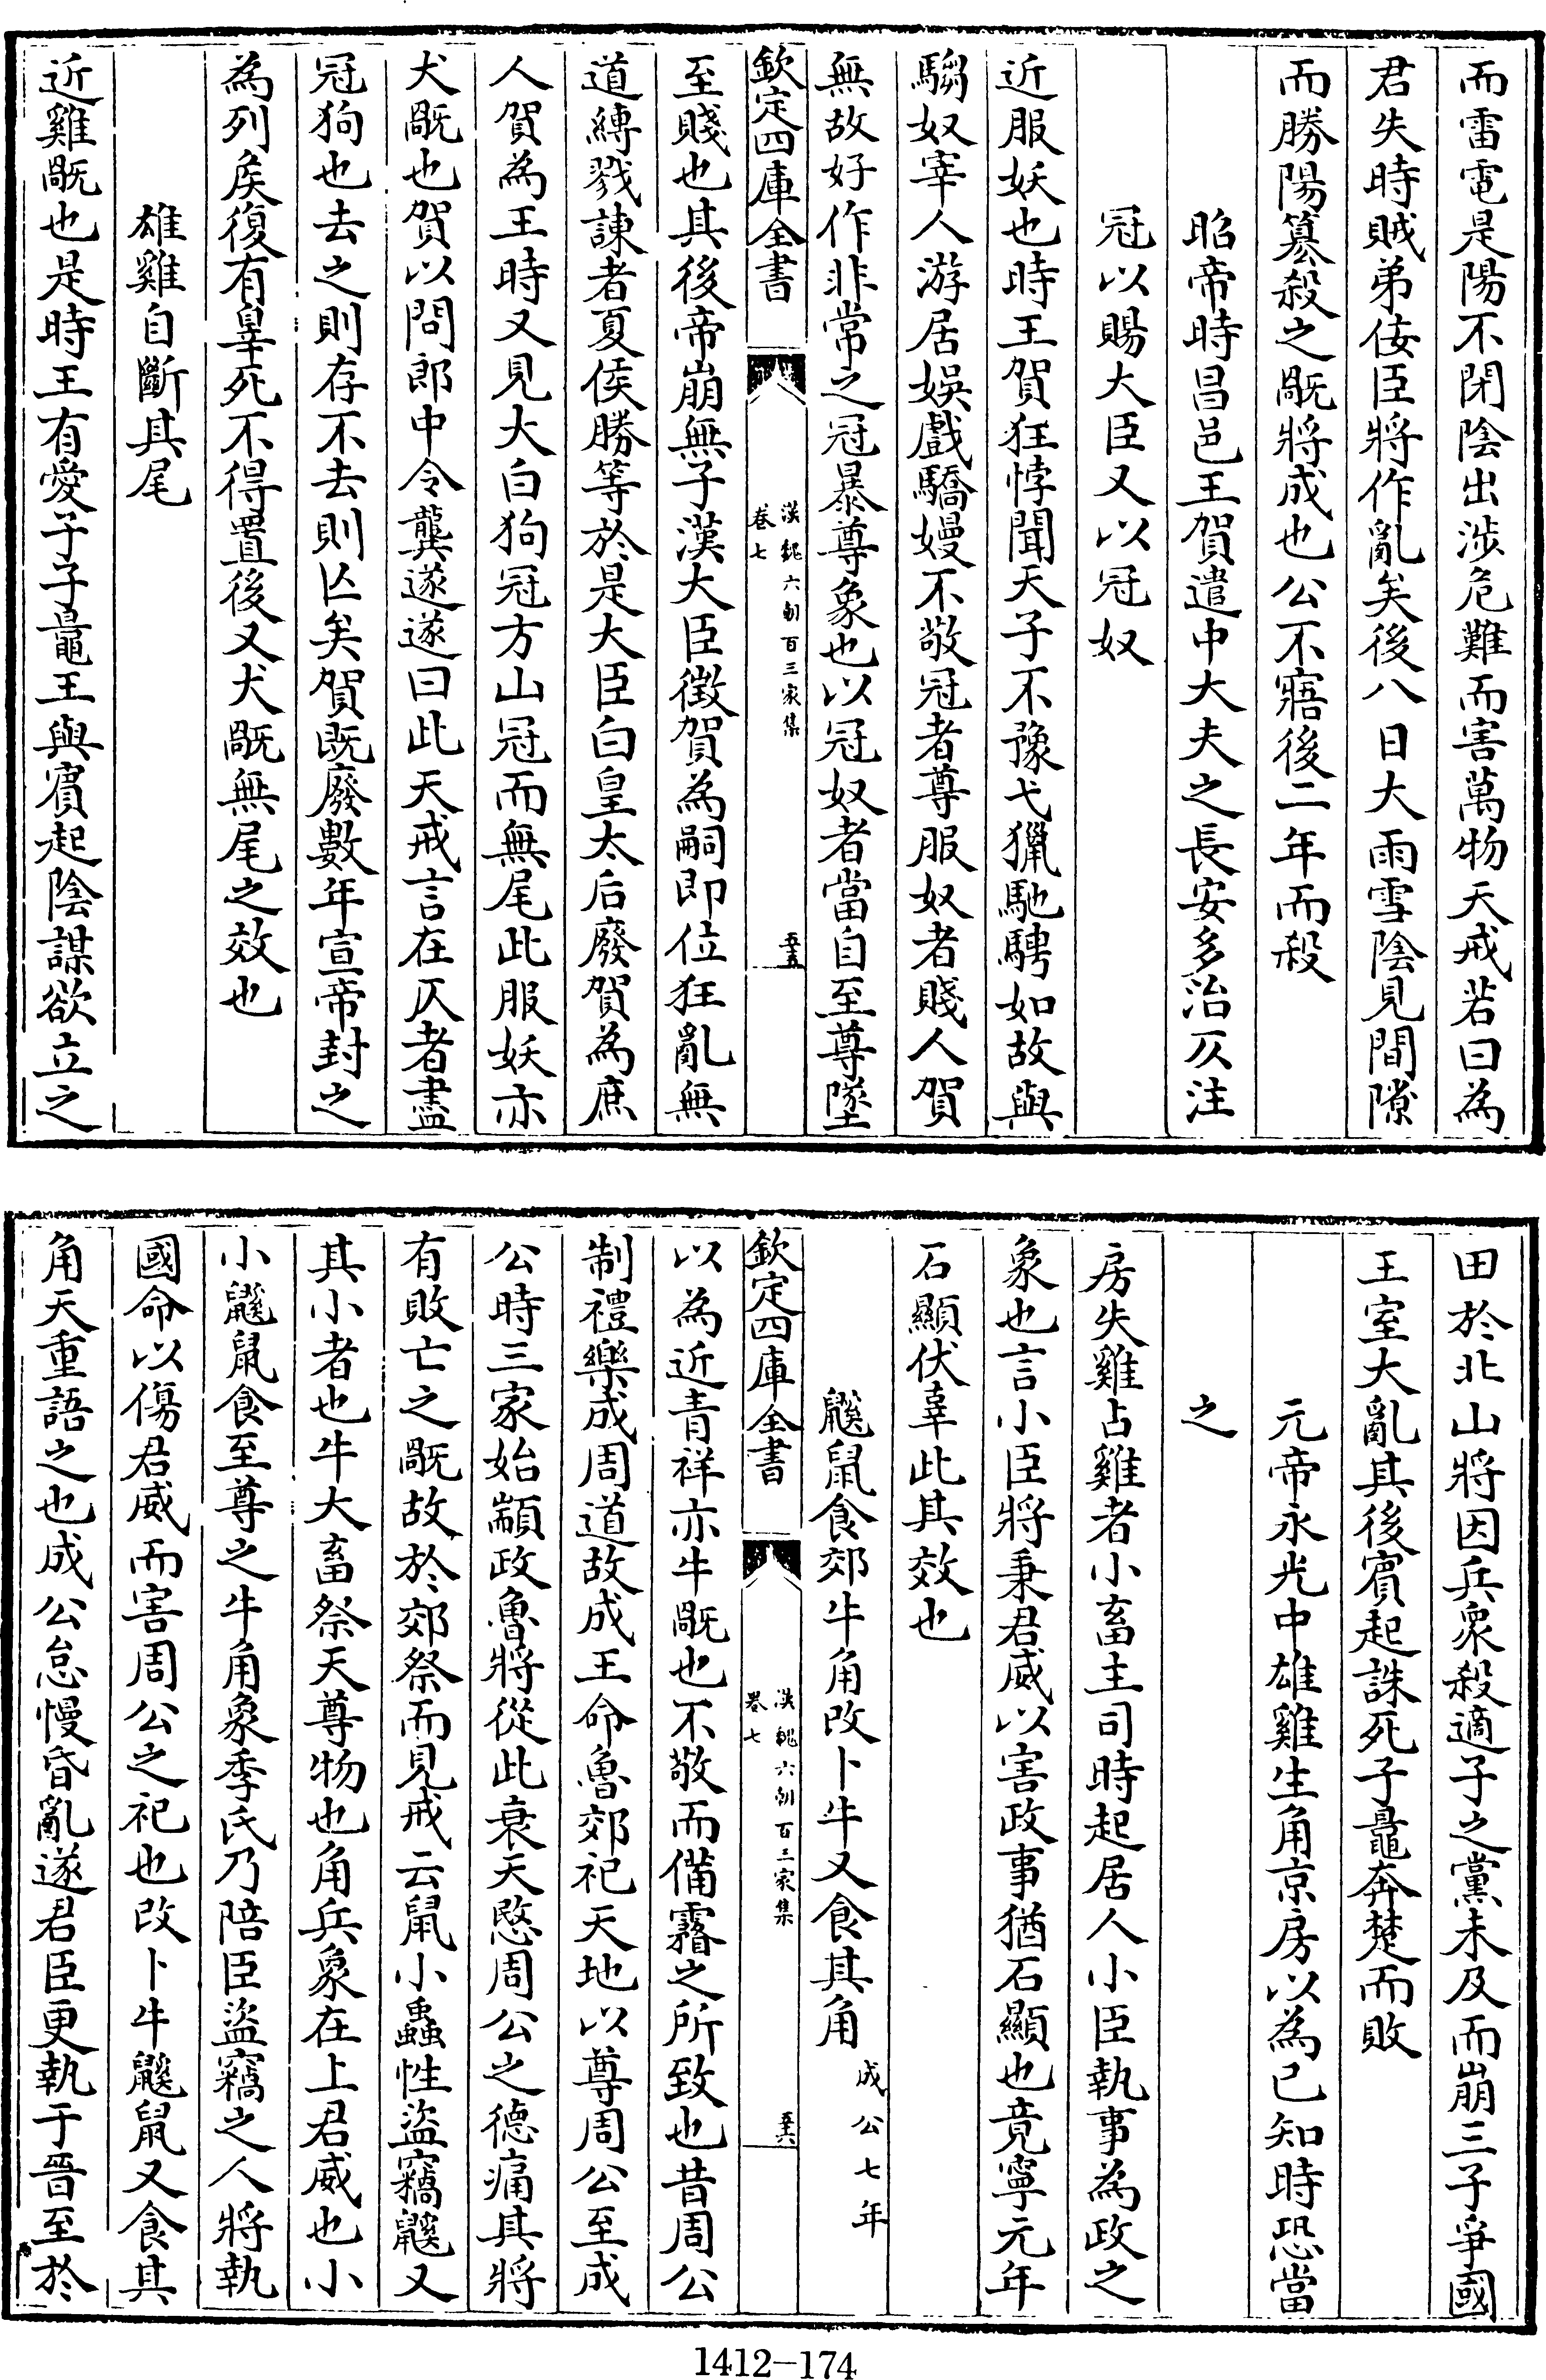 而雷電是陽不閉陰出涉危難而害萬物天戒若曰為
君失時賊弟佞臣將作亂矣後八日大雨雪陰見間隙
而勝陽簒殺之旤將成也公不寤後二年而殺
昭帝時昌邑王賀遣中大夫之長安多治仄注
冠以賜大臣又以冠奴
近服妖也時王賀狂悖聞天子不豫弋獵馳騁如故與
騶奴宰人游居娛戲驕嫚不敬冠者尊服奴者賤人賀
無故好作非常之冠暴尊象也以冠奴者當自至尊墜
欽定四庫全書
漢魏六朝百三家集
卷七
五十五
至賤也其後帝崩無子漢大臣徵賀為嗣即位狂亂無
道縛戮諫者夏侯勝等於是大臣白皇太后廢賀為庶
人賀為王時又見大白狗冠方山冠而無尾此服妖亦
犬旤也賀以問郎中令龔遂遂曰此天戒言在仄者盡
冠狗也去之則存不去則亾矣賀既廢數年宣帝封之
為列矦復有辠死不得置後又犬旤無尾之效也
雄雞自斷其尾
近雞旤也是時王有愛子子鼂王與賓起陰謀欲立之
田於北山將因兵衆殺適子之黨未及而崩三子爭國
王室大亂其後賓起誅死子鼂奔楚而敗
元帝永光中雄雞生角京房以為已知時恐當
之
房失雞占雞者小畜主司時起居人小臣執事為政之
象也言小臣將秉君威以害政事猶石顯也竟寧元年
石顯伏辜此其效也
鼷鼠食郊牛角改卜牛又食其角
成公七年
欽定四庫全書
漢魏六朝百三家集
卷七
五十六
以為近青祥亦牛旤也不敬而備霿之所致也昔周公
制禮樂成周道故成王命魯郊祀天地以尊周公至成
公時三家始顓政魯將從此衰天愍周公之德痛其將
有敗亡之旤故於郊祭而見戒云鼠小蟲性盜竊鼷又
其小者也牛大畜祭天尊物也角兵象在上君威也小
小鼷鼠食至尊之牛角象季氏乃陪臣盜竊之人將執
國命以傷君威而害周公之祀也改卜牛鼷鼠又食其
角天重語之也成公怠慢昏亂遂君臣更執于晉至於
1412-174